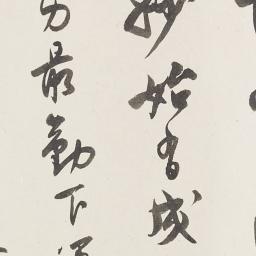 妙始有成
力最勤下